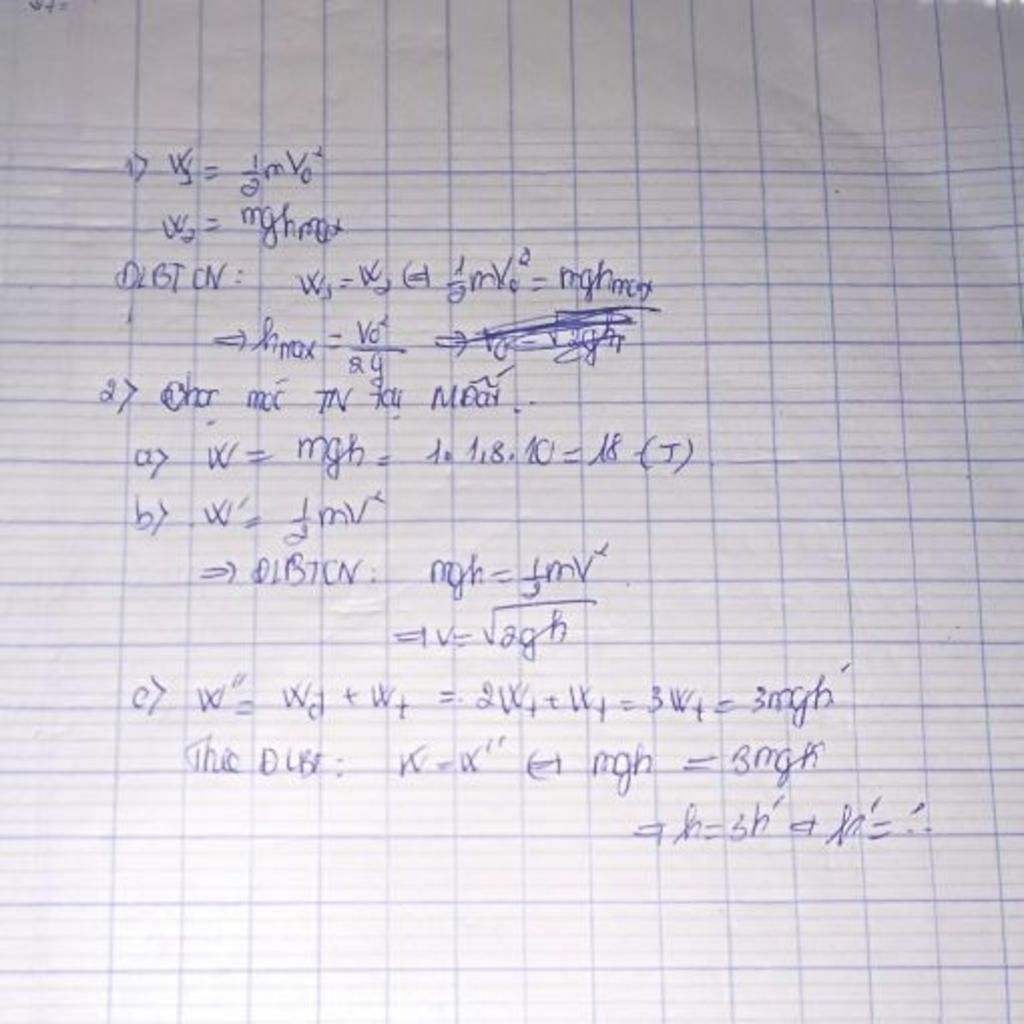 1) W₁ = ½mV₀²
W₂ = mghmax
ĐLBTCN: W₁ = W₂ ⇔ ½mV₀² = mghmax
⇒ hmax = V₀²/2g ⇒
2) Chọn mốc TN tại MĐất.
a) W = mgh = 1.1,8.10 = 18 (J)
b) W' = ½mV²
⇒ ĐLBTCN: mgh = ½mV²
⇒ v = √2gh
c) W'' = Wđ + Wt = 2Wt + Wt = 3Wt = 3mgh'
Theo ĐLBT: W = W'' ⇔ mgh = 3mgh'
⇒ h = 3h' ⇒ h' = ...